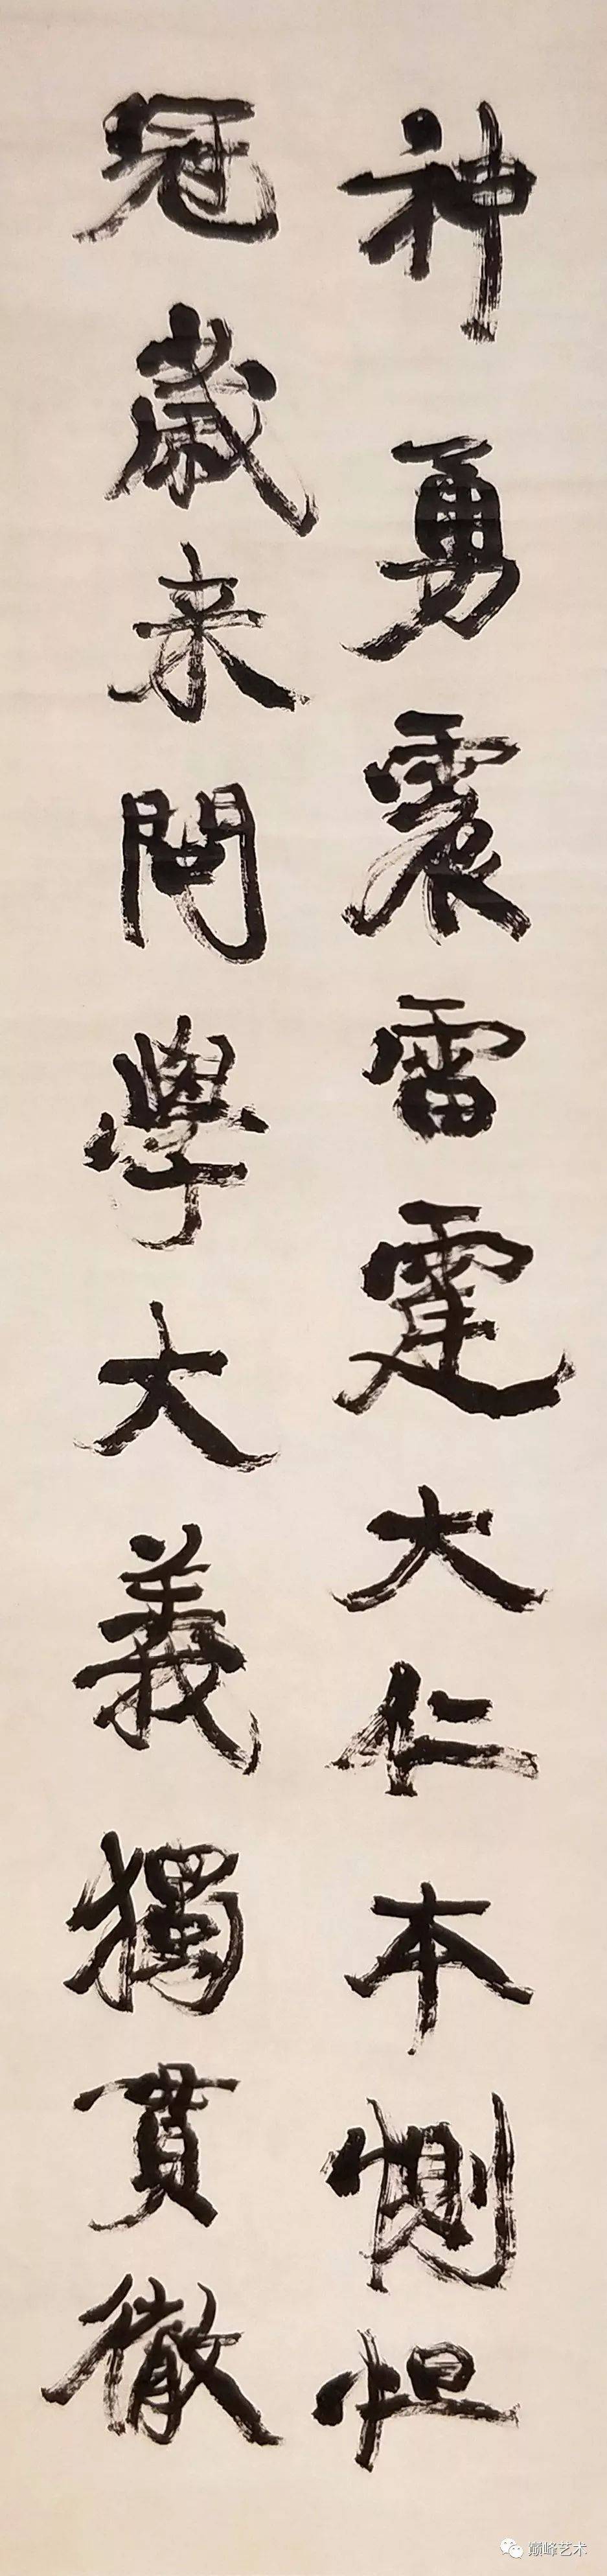 神勇震雷霆大仁本惻怛
冠歲来問學大義獨貫徹
巅峰艺术